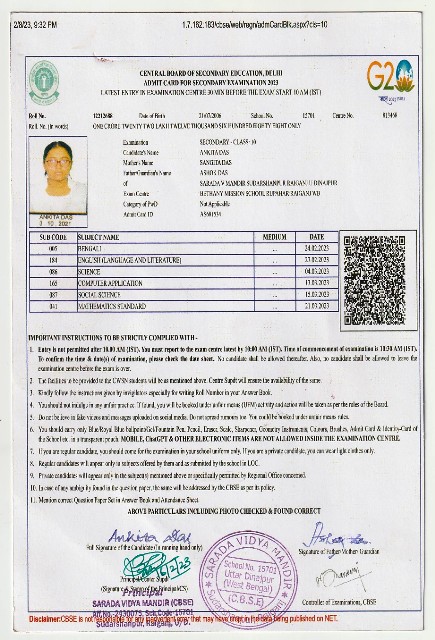 2/8/23, 9:32 PM 1.7.162.183/cbse/web/regn/admCardBlk.aspx?cls=10
CENTRAL BOARD OF SECONDARY EDUCATION, DELHI
ADMIT CARD FOR SECONDARY EXAMINATION 2023
LATEST ENTRY IN EXAMINATION CENTRE 30 MIN BEFORE THE EXAM START 10 AM (IST)
G20
Roll No. 12212688 Date of Birth 21/07/2006 School No. 15701 Centre No.
Roll. No. (in words) ONE CRORE TWENTY TWO LAKH TWELVE THOUSAND SIX HUNDRED EIGHTY EIGHT ONLY
Examination SECONDARY - CLASS- 10
Candidate's Name ANKITA DAS
Mother's Name SANGITA DAS
Father/Guardian's Name ASHOK DAS
of SARADA V MANDIR SUDARSHANPUR RAIGANJ U DINAJPUR
Exam Centre BETHANY MISSION SCHOOL RUPAHAR RAIGANJ WB
Category of PwD Not Applicable
Admit Card ID
ANKITA DAS
3 10 2021
SUB CODE SUBJECT NAME MEDIUM DATE
005 BENGALI .. 24.02.2023
184 ENGLISH (LANGUAGE AND LITERATURE) .. 27.02.2023
086 SCIENCE .. 04.03.2023
165 COMPUTER APPLICATION .. 13.03.2023
087 SOCIAL SCIENCE .. 15.03.2023
041 MATHEMATICS STANDARD .. 21.03.2023
IMPORTANT INSTRUCTIONS TO BE STRICTLY COMPLIED WITH -
1. Entry is not permitted after 10.00 AM (IST). You must report to the exam centre latest by 10.00 AM (IST). Time of commencement of examination is 10:30 AM (IST).
To confirm the time & date(s) of examination, please check the date sheet. No candidate shall be allowed thereafter. Also, no candidate shall be allowed to leave the
examination centre before the exam is over.
2. The facilities to be provided to the CWSN students will be as mentioned above. Centre Supdt will ensure the availability of the same.
3. Kindly follow the instructions given by invigilators especially for writing Roll Number in your Answer Book.
4. You should not indulge in any unfair practice. If found, you will be booked under unfair means (UFM) activity and action will be taken as per the rules of the Board.
5. Do not believe in fake videos and messages uploaded on social media. Do not spread rumours too. You could be booked under unfair means rules.
6. You should carry only Blue/Royal Blue ballpoint/Gel/Fountain Pen, Pencil, Eraser, Scale, Sharpener, Geometry Instruments, Colours, Brushes, Admit Card & Identity-Card
of the School etc. in a transparent pouch. MOBILE, ChatGPT & OTHER ELECTRONIC ITEMS ARE NOT ALLOWED INSIDE THE EXAMINATION CENTRE.
7. If you are regular candidate, you should come for the examination in your school uniform only. If you are a private candidate, you can wear light clothes only.
8. Regular candidates will appear only in subjects offered by them and as submitted by the school in LOC.
9. Private candidates will appear only in the subject(s) mentioned above or specifically permitted by Regional Office concerned.
10. In case of any ambiguity found in the question paper, the same will be addressed by the CBSE as per its policy.
11. Mention correct Question Paper Set in Answer Book and Attendance Sheet.
ABOVE PARTICULARS INCLUDING PHOTO CHECKED & FOUND CORRECT
Ankita das
Full Signature of the Candidate (in running hand only)
Signature of Father/Mother/Guardian
SARADA VIDYA MANDIR
School No. 15701
Uttar Dinajpur
(West Bengal)
(C.B.S.E)
Principal
SARADA VIDYA MANDIR (CBSE)
Controller of Examinations, CBSE
Sudarshanpur, Raiganj, U/D.
Disclaimer:CBSE is not responsible for any inadvertent error that may have crept in the data being published on NET.